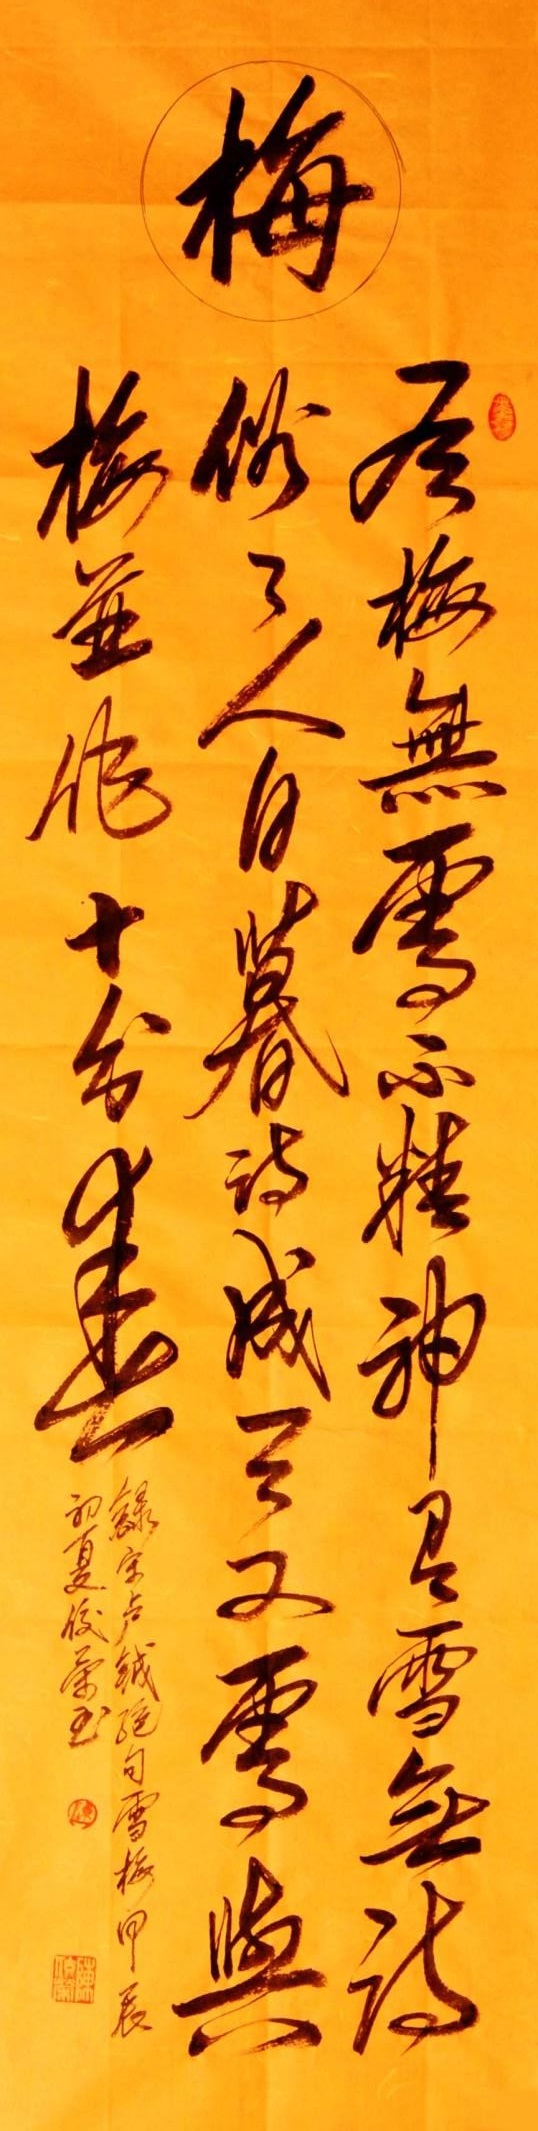 梅
有梅無雪不精神有雪无诗
俗了人日暮诗成天又雪與
梅並作十分春
録宋卢钺绝句雪梅甲辰
初夏俊荣书